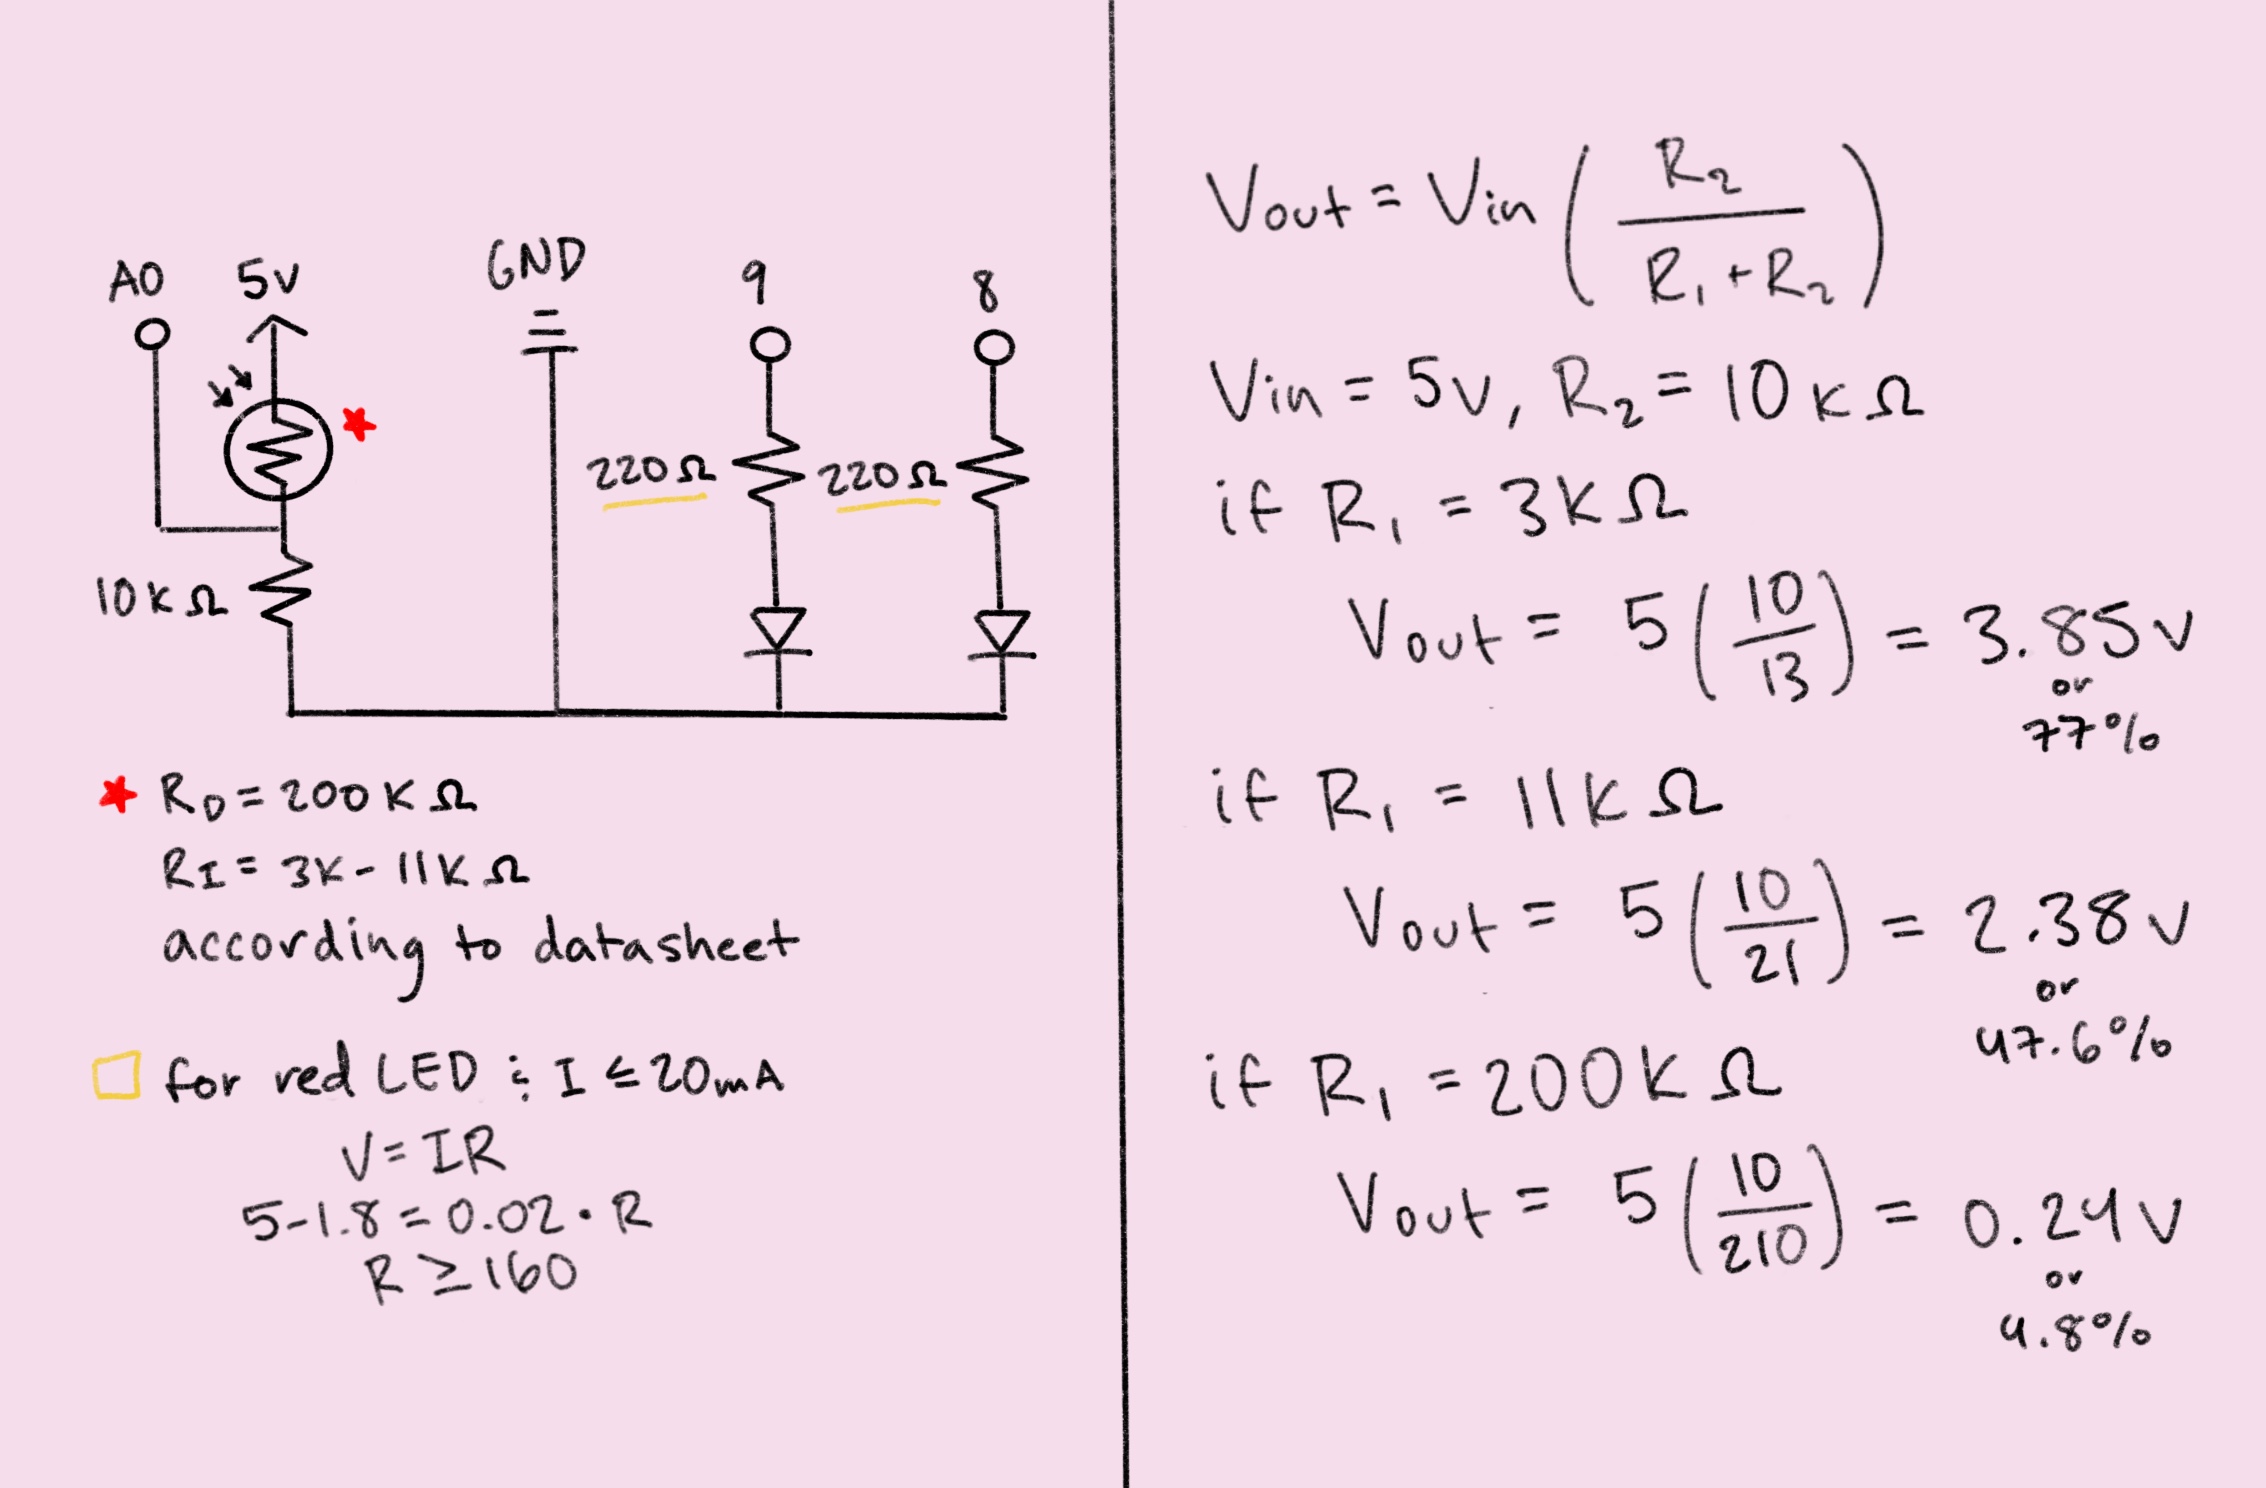 A0 5v GND 9 8
220Ω 220Ω
10KΩ
★ R_D = 200KΩ
R_I = 3K - 11KΩ
according to datasheet
for red LED & I ≤ 20mA
V = IR
5 - 1.8 = 0.02 · R
R ≥ 160
Vout = Vin (R₂ / (R₁ + R₂))
Vin = 5v, R₂ = 10KΩ
if R₁ = 3KΩ
Vout = 5 (10/13) = 3.85v
or
77%
if R₁ = 11KΩ
Vout = 5 (10/21) = 2.38v
or
47.6%
if R₁ = 200KΩ
Vout = 5 (10/210) = 0.24v
or
4.8%